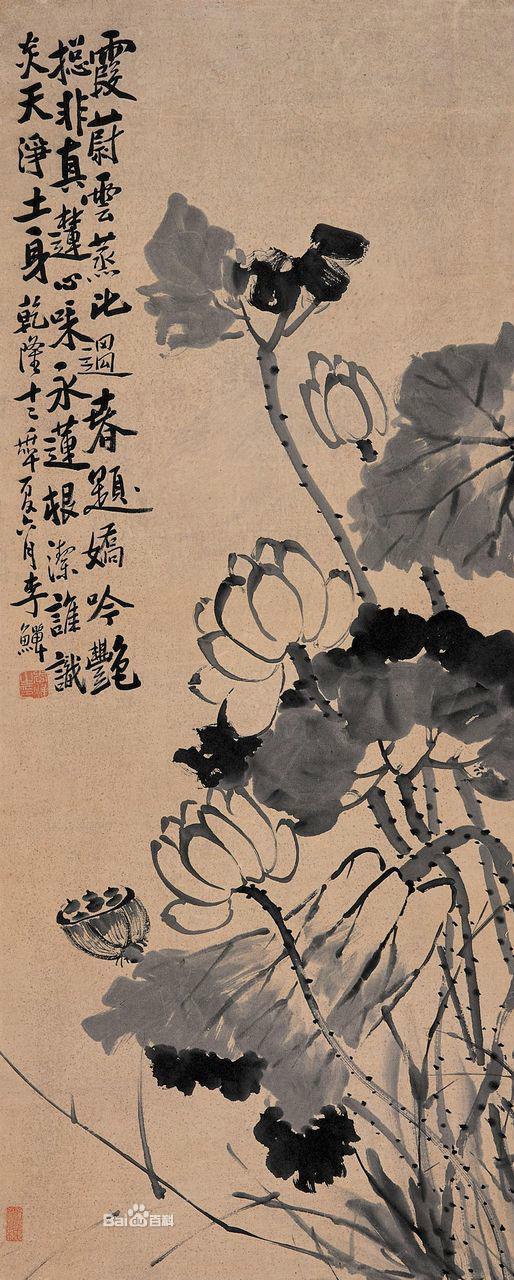 霞蔚雲蒸此過春題嬌吟艷
摠非真蓮心味永蓮根潔誰識
炎天淨土身乾隆十年夏六月李鱓
Bai百科